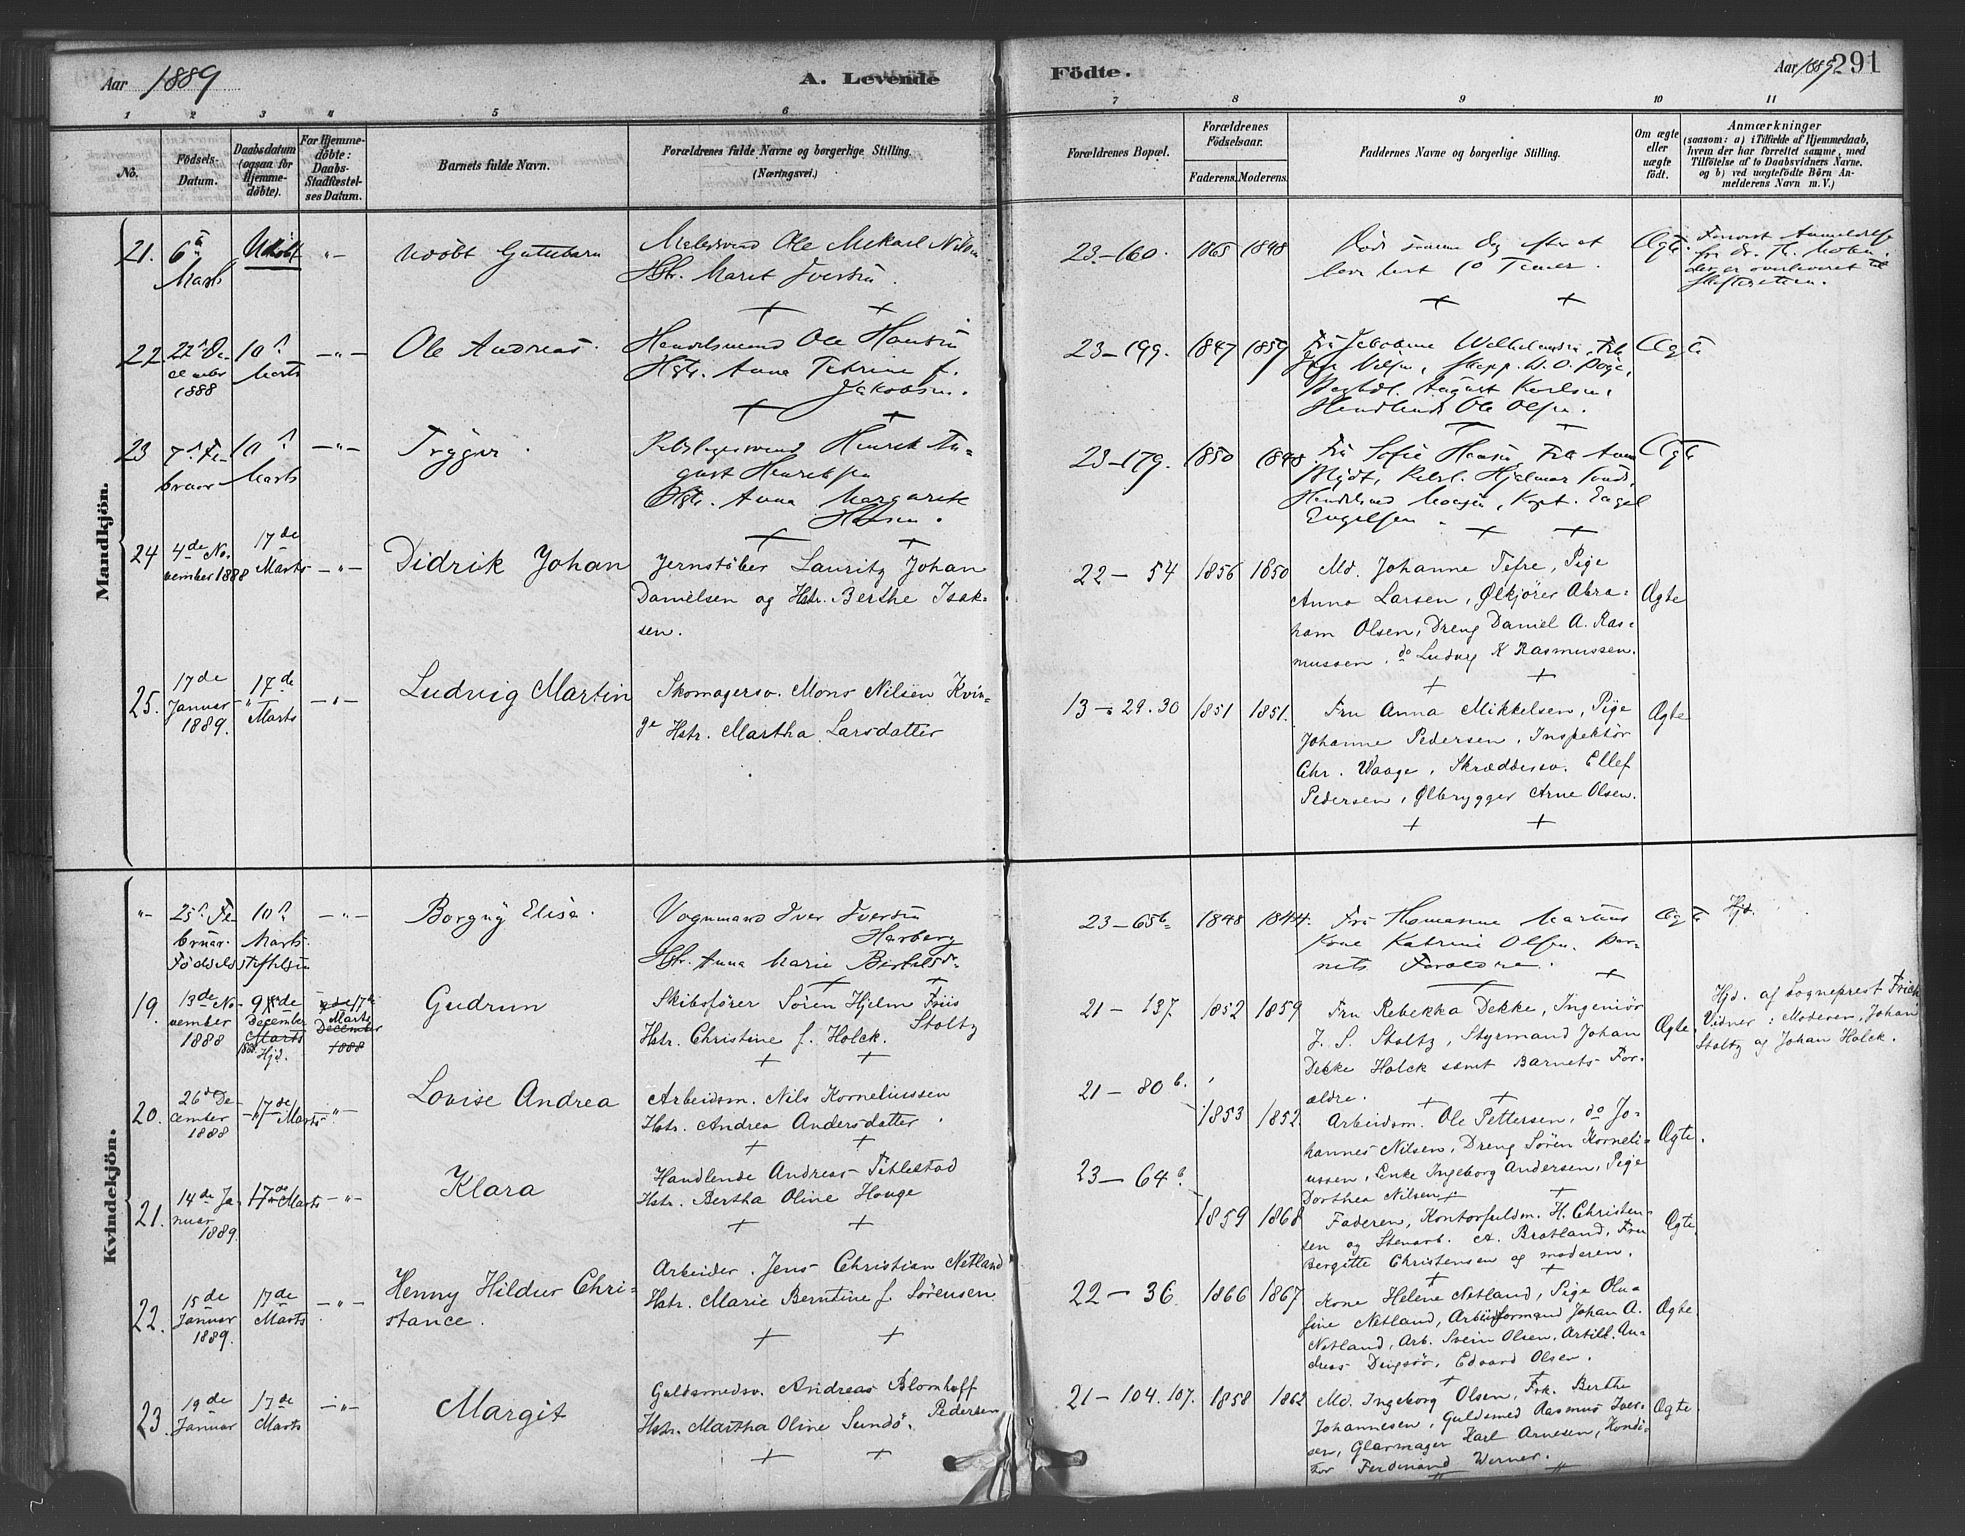 Aar 1889
A. Levende
Födte.
Aar 1889
291
1 2 3 4 5 6 7 8 9 10 11
No.
Födsels-
Datum.
Daabsdatum
(ogsaa for
Hjemme-
döbte).
For Hjemme-
döbte:
Daabs-
Stadfæstel-
ses Datum.
Barnets fulde Navn.
Forældrenes fulde Navne og borgerlige Stilling.
(Næringsvei.)
Forældrenes Bopæl.
Forældrenes
Födselsaar.
Faderens.
Moderens.
Faddernes Navne og borgerlige Stilling.
Om ægte
eller
uægte
födt.
Anmærkninger
(saasom: a) i Tilfælde af Hjemmedaab,
hvem der har forrettet samme, med
Tilföielse af to Daabsvidners Navne.
og b) ved uægtefödte Börn An-
melderens Navn m. V.)
Mandkjön.
21. 6te
Marts
Udöbt
Udöbt Guttebarn
Ole Mikael
Hstr. Maret Iversen.
23-160. 1865 1848
Död samme Dag efter at
have levet 10 Timer.
Ægte
22. 22de De-
cember
1888
10de
Marts
Ole Andreas.
Handelsmand Ole Hansen
Hstr. Anna f.
Jakobsen.
23-199. 1847 1859
August Karlsen,
Ole Olsen.
Ægte
23 7de Fe-
bruar
10de
Marts
Trygve.
Henrik Au-
gust Henriksen
Hstr. Anna Margarete
Hansen.
23-179. 1850 1848
Fru Sofie Hansen Frk Anna
Hjelmar
Engel
Engelsen.
Ægte
24 4de No-
vember 1888
17de
Marts
Didrik Johan
Jernstöber Lauritz Johan
Danielsen og Hstr. Berthe Isak-
sen.
22-54 1856 1850
Md. Johanne Tefre, Pige
Anna Larsen, Ølkjörer Abra-
ham Olsen, Dreng Daniel A. Ras-
mussen, do Ludvig K Rasmussen.
Ægte
25. 17de
Januar
1889.
17de
Marts
Ludvig Martin
Skomagersv. Mons Nilsen Kvin-
ge Hstr. Martha Larsdatter
13-29.30 1851 1851.
Fru Anna Mikkelsen, Pige
Johanne Pedersen, Inspektör
Chr. Waage, Skræddersv. Ellef
Pedersen, Ølbrygger Arne Olsen.
Ægte
Kvindekjön.
25de Fe-
bruar.
Födselsstiftelsen
10de
Marts.
Borgny Elise.
Vognmand Iver Iversen
Hstr. Anna Marie
23-65b 1848 1844.
Fru Thomasine Martens
Kone Katrine Olsen. Bar-
nets Forældre.
Ægte
Hjd.
19. 13de No-
vember
1888
9de
December
Marts
1888
Hjd.
17de
Marts
December
1888
Gudrun
Skibsförer Sören Hjelm Friis
Stoltz
Hstr. Christine f. Holck.
21-137. 1852 1859
Fru Rebekka Dekke, Ingeniör
J. S. Stoltz, Styrmand Johan
Dekke Holck samt Barnets For-
ældre.
Ægte.
Hjd. af Sogneprest Frich
Vidner: Moderen, Johan
Stoltz og Johan Holck.
20. 26de De-
cember
1888
17de Marts
Lovise Andrea
Arbeidsm. Nils Korneliussen
Hstr. Andrea Andersdatter.
21-80b. 1853 1852.
Arbeidsm. Ole Pettersen, do Jo-
hannes Nilsen, Dreng Sören Korneli-
ussen, Enke Ingeborg Andersen, Pige
Dorthea Nilsen
Ægte.
21. 14de Ja-
nuar
1889.
17de Marts
Klara
Handlende Andreas Titlestad
Hstr. Bertha Oline Hauge
23-64b. 1859 1868
Faderen, Kontorfuldm. H. Christen-
sen og Stenarb. A. Bratland, Fru
Bergitte Christensen og moderen.
Ægte
22. 15de
Januar
1889.
17de
Marts
Henny Hildur Chri-
stance.
Arbeider Jens Christian Netland
Hstr. Marie Berntine f Sörensen
22-36 1866 1867
Kone Helene Netland, Pige Olu-
fine Netland, Arbeidsformand Johan A.
Netland, Arb. Svein Olsen, Artill. An-
dreas Dingsör, Edvard Olsen.
Ægte.
23. 19de
Januar
17de
Marts
Margit
Guldsmedsv. Andreas Blomhoff
Pedersen
Hstr. Martha Oline Sundö.
21-104.107. 1858 1862
Md. Ingeborg Olsen, Frk. Berthe
Johannesen, Guldsmed Rasmus Iver-
sen, Glarmager Karl Arnesen, Kondi-
tor Ferdinand Werner.
Ægte.